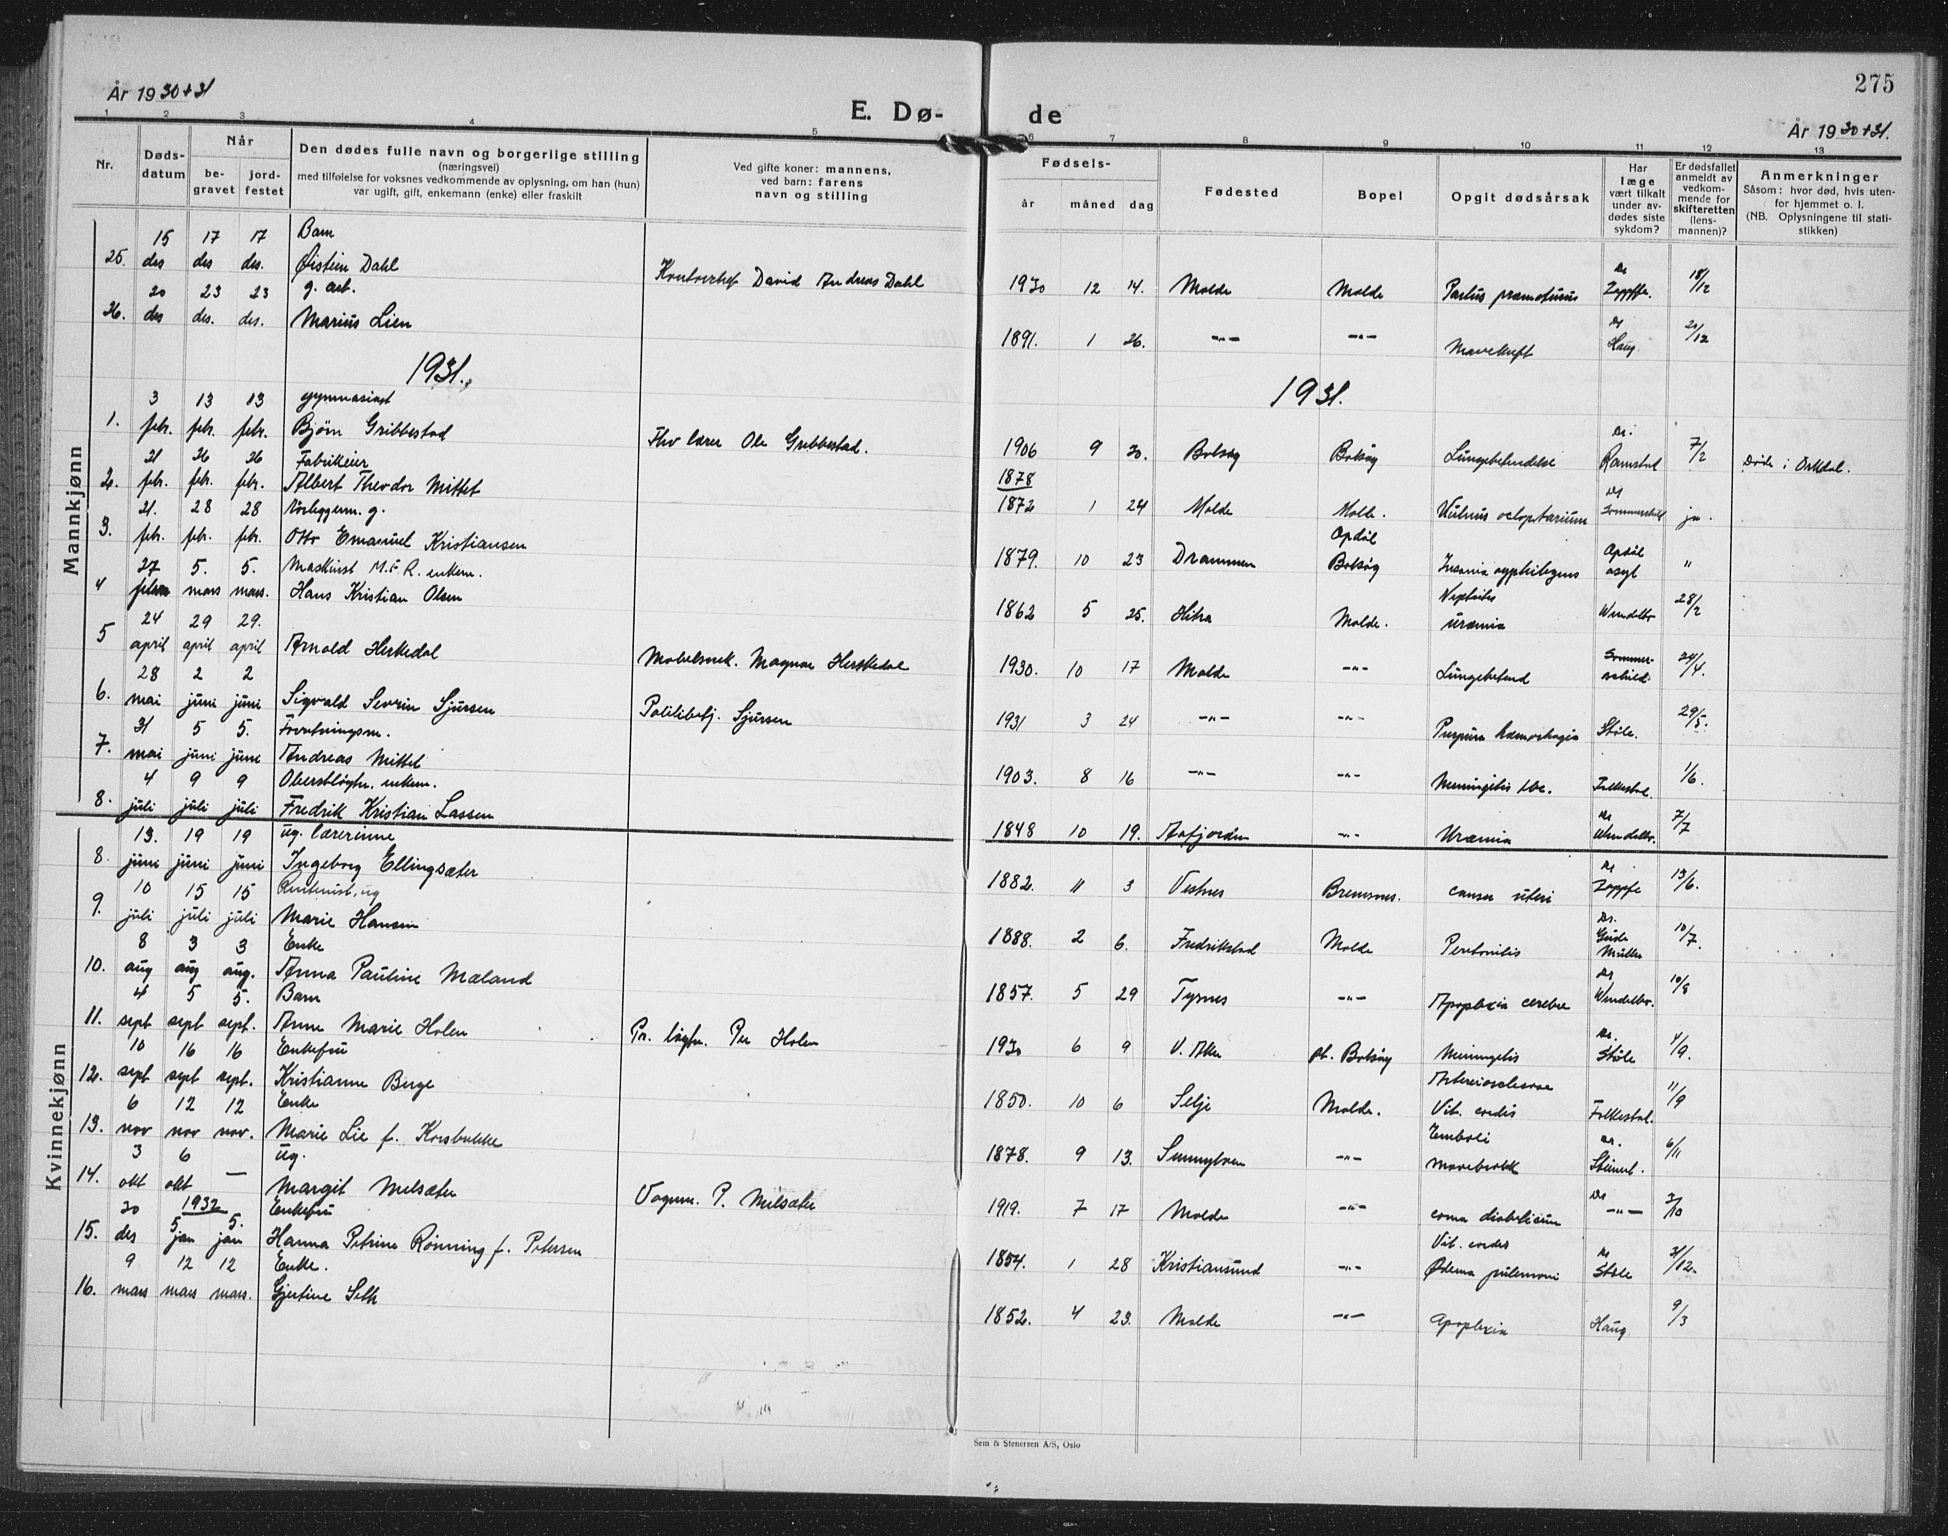 275
År 1930+31
E. Dø- de
År 1930+31.
1 2 3 4 5 6 7 8 9 10 11 12 13
Nr.
Døds-
datum
Når
be-
gravet
jord-
festet
Den dødes fulle navn og borgerlige stilling
(næringsvei)
med tilføielse for voksnes vedkommende av oplysning, om han (hun)
var ugift, gift, enkemann (enke) eller fraskilt
Ved gifte koner: mannens,
ved barn: farens
navn og stilling
Fødsels-
år måned dag
Fødested
Bopel
Opgit dødsårsak
Har
læge
vært tilkalt
under av-
dødes siste
sykdom?
Er dødsfallet
anmeldt av
vedkom-
mende for
skifteretten
(lens-
mannen)?
Anmerkninger
Såsom: hvor død, hvis uten-
for hjemmet o. l.
(NB. Oplysningene til stati-
stikken)
Mannkjønn
15 17 17 Barn
25. des des des. Øistein Dahl Kontorchef David Andreas Dahl 1930 12 14. Molde Molde Partus præmaturus Dr Zapffe. 18/12
20 23 23 g. arb.
26. des des. des. Marius Lien 1891. 1 26. -"- -"- Mavekreft Dr Haug 20/12
1931. 1931.
3 13 13 gymnasiast
1. febr. febr. febr. Bjørn Gribbestad Fhv lærer Ole Gribbestad. 1906 9 30. Bolsøy Bolsøy Lungebetendelse Dr. Ramstad 7/2 Døde i Orkdal.
21 26 26 Fabrikeier 1878
2. febr. febr. febr. Albert Theodor Mittet 1872 1 24 Molde Molde. Vulnus sclopetarium Dr Sommerschild ja.
21. 28 28 Rørleggerm. g.
3. febr. febr. febr. Otto Emanuel Kristiansen 1879. 10 23 Drammen Opdøl Bolsøy Insania syphilogenes Opdøl asyl "
27 5. 5. Maskinist M.F.R. enkem.
4 febr. mars mars. Hans Kristian Olsen 1862 5 25. Hitra Molde. Nephritis uræmia Wendelbo 28/2
24 29 29.
5 april april april Arnold Herskedal Møbelsnek. Magnar Herskedal 1930. 10 17 Molde -"- Lungebetend Sommerschild. 24/4.
28 2 2
6. mai juni juni Sigvald Severin Sjursen Politibetj. Sjursen 1931 3 24 -"- -"- Purpura hæmorhagia Støle. 29/5.
31 5 5. Forretningsm.
7. mai juni june Andreas Mittet 1903. 8 16 -"- -"- Meningitis tbc. Folkestad. 1/6.
4 9 9 Oberstløytn. enkem.
8. juli juli juli Fredrik Kristian Lassen 1848 10 19. Aafjorden -"- Uræmia Dr Wendelbo. 7/7
Kvinnekjønn
13. 19 19 ug. lærerinne
8. juni juni juni Ingeborg Ellingsæter 1882. 11 3 Vestnes Bremsnes. cancer uteri Dr Zapffe 13/6.
10 15 15 Rentenist, ug
9. juli juli juli Marie Hansen 1888. 2 6. Fredrikstad Molde Peritonitis Dr. Gude Müller 10/7.
8 3 3 Enke
10. aug aug aug. Anna Pauline Mæland 1857. 5 29 Tysnes -"- Apoplexia cerebri Dr Wendelbo. 10/8
4 5 5. Barn
11. sept sept sept. Anne Marie Holen Pr. løytn. Per Holen 1930 6 9 V. Aker pt. Bolsøy Meningitis Dr. Støle 4/9.
10 16 16 Enkefru
12. sept sept sept. Kristianne Berge 1850. 10 6 Selje Molde. Arteriosclerose Vit. cordis Folkestad. 11/9
6 12 12 Enke
13. nov nov nov. Marie Lie f. Korsbakke 1878. 9 13. Sunnylven -"- Emboli mavebrokk Dr. Steinert. 6/11
3 6 ug.
14. okt okt — Margit Melsæter Vognm. P. Melsæter 1919. 7 17 Molde -"- coma diabeticum Dr -"- 3/10
30 1932 Enkefru
15. des 5 jan 5. jan Hanna Petrine Rønning f. Petersen 1854. 1 28 Kristiansund -"- Vit. cordis Ødema pulmoni Dr Støle 31/12.
9 12 12 Enke.
16. mars mars mars. Gjertine Seth 1852. 4 23. Molde -"- apoplexia Haug 9/3
Sem & Stenersen A/S, Oslo